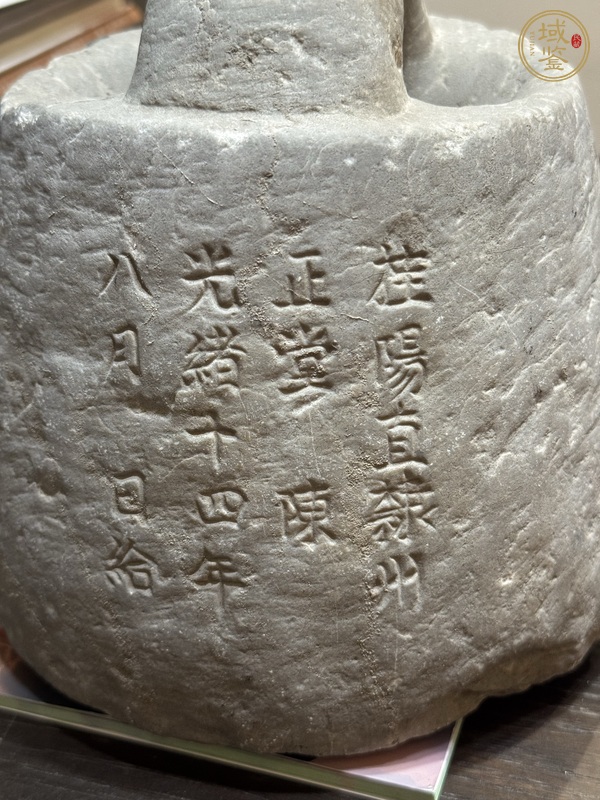 桂陽直隸州
正堂 陳
光緒十四年
八月 日給
域鉴